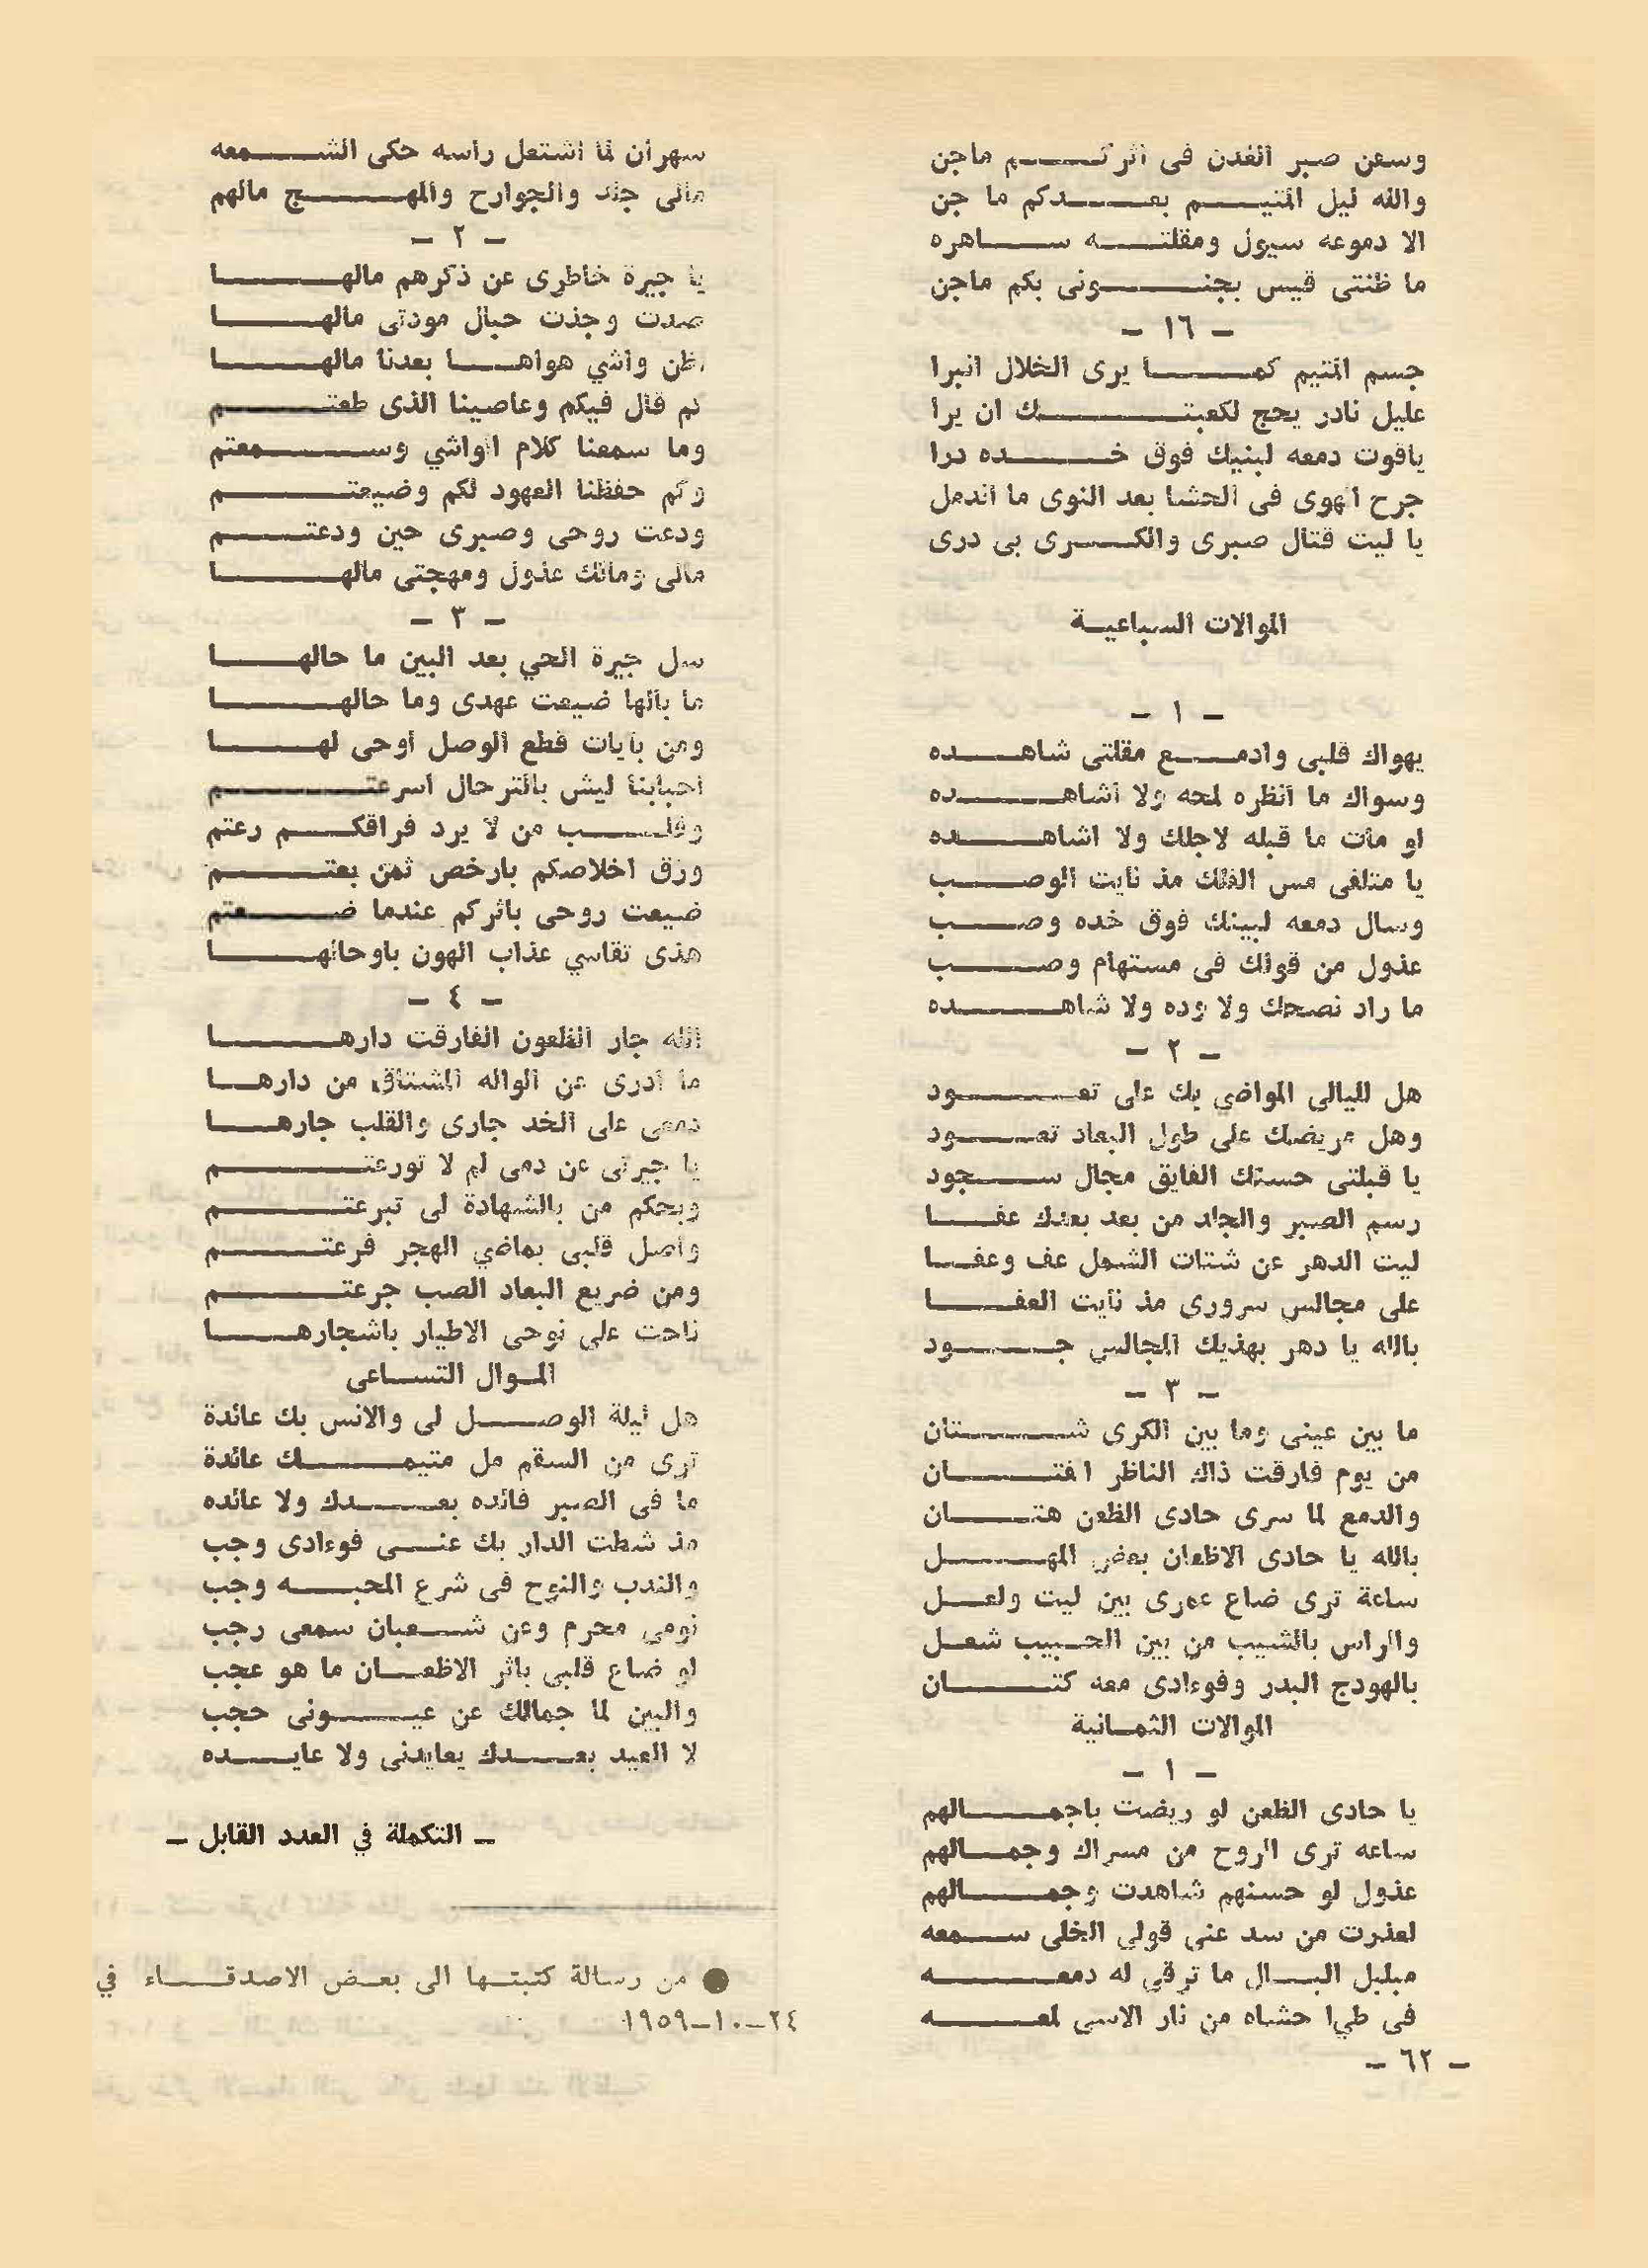 وسعن صبر الغدن فى اثركم ماجن
والله ليل المتيم بعدكم ما جن
الا دموعه سيول ومقلته ساهره
ما ظنتى قيس بجنونى بكم ماجن
– ١٦ –
جسم المتيم كما يرى الخلال انبرا
عليل نادر يحج لكعبتك ان يرا
ياقوت دمعه لبنيك فوق خده درا
جرح الهوى فى الحشا بعد النوى ما اندمل
يا ليت قتال صبرى والكرى بى درى
الموالات السباعية
– ١ –
يهواك قلبى وادمع مقلتى شاهده
وسواك ما أنظره لمحه ولا أشاهده
او مات ما قبله لاجلك ولا اشاهده
يا متلفى مس الفلك مذ نأيت الوصب
وسال دمعه لبينك فوق خده وصب
عذول من قولك فى مستهام وصب
ما راد نصحك ولا وده ولا شاهده
– ٢ –
هل لليالى المواضي بك على تعود
وهل مريضك على طول البعاد تعود
يا قبلتى حسنك الفايق مجال سجود
رسم الصبر والجلد من بعد بعدك عفا
ليت الدهر عن شتات الشمل عف وعفا
على مجالس سرورى مذ نأيت العفا
بالله يا دهر بهذيك المجالس جود
– ٣ –
ما بين عينى وما بين الكرى شتان
من يوم فارقت ذاك الناظر الفتان
والدمع لما سرى حادى الظعن هتان
بالله يا حادى الاظعان بعض المهل
ساعة ترى ضاع عمرى بين ليت ولعل
والراس بالشيب من بين الحبيب شعل
بالهودج البدر وفوءادى معه كتان
الموالات الثمانية
– ١ –
يا حادى الظعن لو ريضت باجمالهم
ساعه ترى الروح من مسراك وجمالهم
عذول لو حسنهم شاهدت وجمالهم
لعذرت من سد عنى قولي الخلى سمعه
مبلبل البال ما ترقى له دمعه
فى طيا حشاه من نار الاسى لمعه
– ٦٢ –
سهران لما اشتعل راسه حكى الشمعه
مالى جلد والجوارح والمهج مالهم
– ٢ –
يا جيرة خاطرى عن ذكرهم مالها
صدت وجذت حبال مودتى مالها
ظن واشي هواها بعدنا مالها
كم قال فيكم وعاصينا الذى طعتم
وما سمعنا كلام الواشي وسمعتم
وكم حفظنا العهود لكم وضيعتم
ودعت روحى وصبرى حين ودعتم
مالى ومالك عذول ومهجتى مالها
– ٣ –
سل جيرة الحي بعد البين ما حالها
ما بالها ضيعت عهدى وما حالها
ومن بآيات قطع الوصل أوحى لها
احبابنا ليش بالترحال اسرعتم
وقلب من لا يرد فراقكم رعتم
ورق اخلاصكم بارخص ثمن بعتم
ضيعت روحى باثركم عندما ضعتم
هذى تقاسي عذاب الهون باوحالها
– ٤ –
الله جار الظعون الفارقت دارها
ما أدرى عن الواله المشتاق من دارها
دمعى على الخد جارى والقلب جارها
يا جيرتى عن دمى لم لا تورعتم
وبحكم من بالشهادة لى تبرعتم
واصل قلبى بماضي الهجر فرعتم
ومن ضريع البعاد الصب جرعتم
ناحت على نوحى الاطيار باشجارها
الموال التساعى
هل ليلة الوصل لى والانس بك عائدة
ترى من السقم مل متيمك عائدة
ما فى الصبر فائده بعدك ولا عائده
مذ شطت الدار بك عنى فوءادى وجب
والندب والنوح فى شرع المحبه وجب
نومى محرم وعن شعبان سمعى رجب
لو ضاع قلبى باثر الاظعان ما هو عجب
والبين لما جمالك عن عيونى حجب
لا العيد بعدك يعايدنى ولا عايده
– التكملة في العدد القابل –
● من رسالة كتبتها الى بعض الاصدقاء في
٢٤–١٠–١٩٥٩